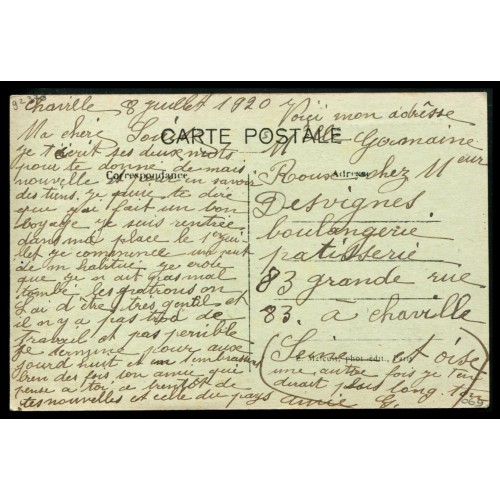 92
chaville 8 juillet 1920
Ma chère
CARTE POSTALE
je t'écrit ses deux mots
pour te donne de mais
Correspondance
nouvelle et en savoir
des tiens. je puie te dire
que j'ai fait un bon
voyage je suis rentrée
dans ma place le 1er jui-
llet je commence un peut
de m'habitué je croie
que je n'ait pas mal
tombé les patrons on
l'ai d'être très gentil et
il n'y a pas trop de
travail et pas penible
je dermine pour aux
jourd huit et m'embrassant
bien des fois ton amie qui
pense a toi a bientôt de
tes nouvelles et celle du pays
Voiçi mon adrêsse
Mlle Germaine
Roous chez Mieur
Adresse
Desvignes
boulangerie
patisserie
83 grande rue
83. a chaville
(Seine et oise
phot-édit., Paris
une autre fois je t'en
dirait plus long. ton
amie G.
069